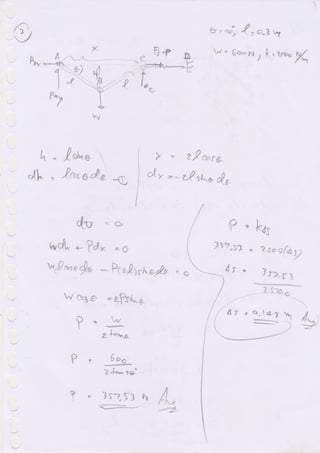 2
θ = 40°, l = 0.3 m
W = 600N, k = 2500 N/m
x
A
C
Fs = P
D
Ax
θ
h
B
l
l
Ay
W
h = l sinθ
dh = l cosθ dθ - ①
x = 2l cosθ
dx = -2l sinθ dθ
dU = 0
Wdh + Pdx = 0
W l cosθ dθ - P(2l) sinθ dθ = 0
W cosθ = 2P sinθ
P = W / 2 tanθ
P = 600 / 2 tan 40°
P = 357,53 N Ans
P = kΔS
357,53 = 2500(ΔS)
ΔS = 357,53 / 2500
ΔS = 0,143 m Ans